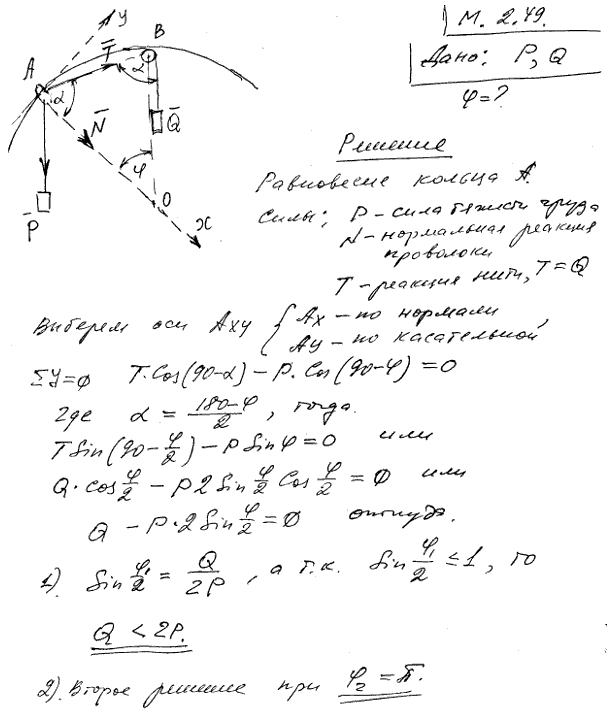 М. 2.49.
Дано: P, Q
φ = ?
Решение
Равновесие кольца A.
Силы: P – сила тяжести груза
N – нормальная реакция
проволоки
T – реакция нити, T = Q
Выберем оси Axy { Ax – по нормали,
Ay – по касательной
ΣY = 0 T·Cos(90-α) – P·Cos(90-φ) = 0
где α = (180-φ)/2, тогда
T Sin(90-φ/2) – P Sin φ = 0 или
Q·cos φ/2 – P 2 Sin φ/2 Cos φ/2 = 0 или
Q – P·2 Sin φ/2 = 0 откуда.
1). Sin φ₁/2 = Q/2P, а т.к. Sin φ₁/2 ≤ 1, то
Q < 2P.
2). Второе решение при φ₂ = π.
y
B
T̄
A
α
α
N̄
Q̄
φ
P̄
O
x